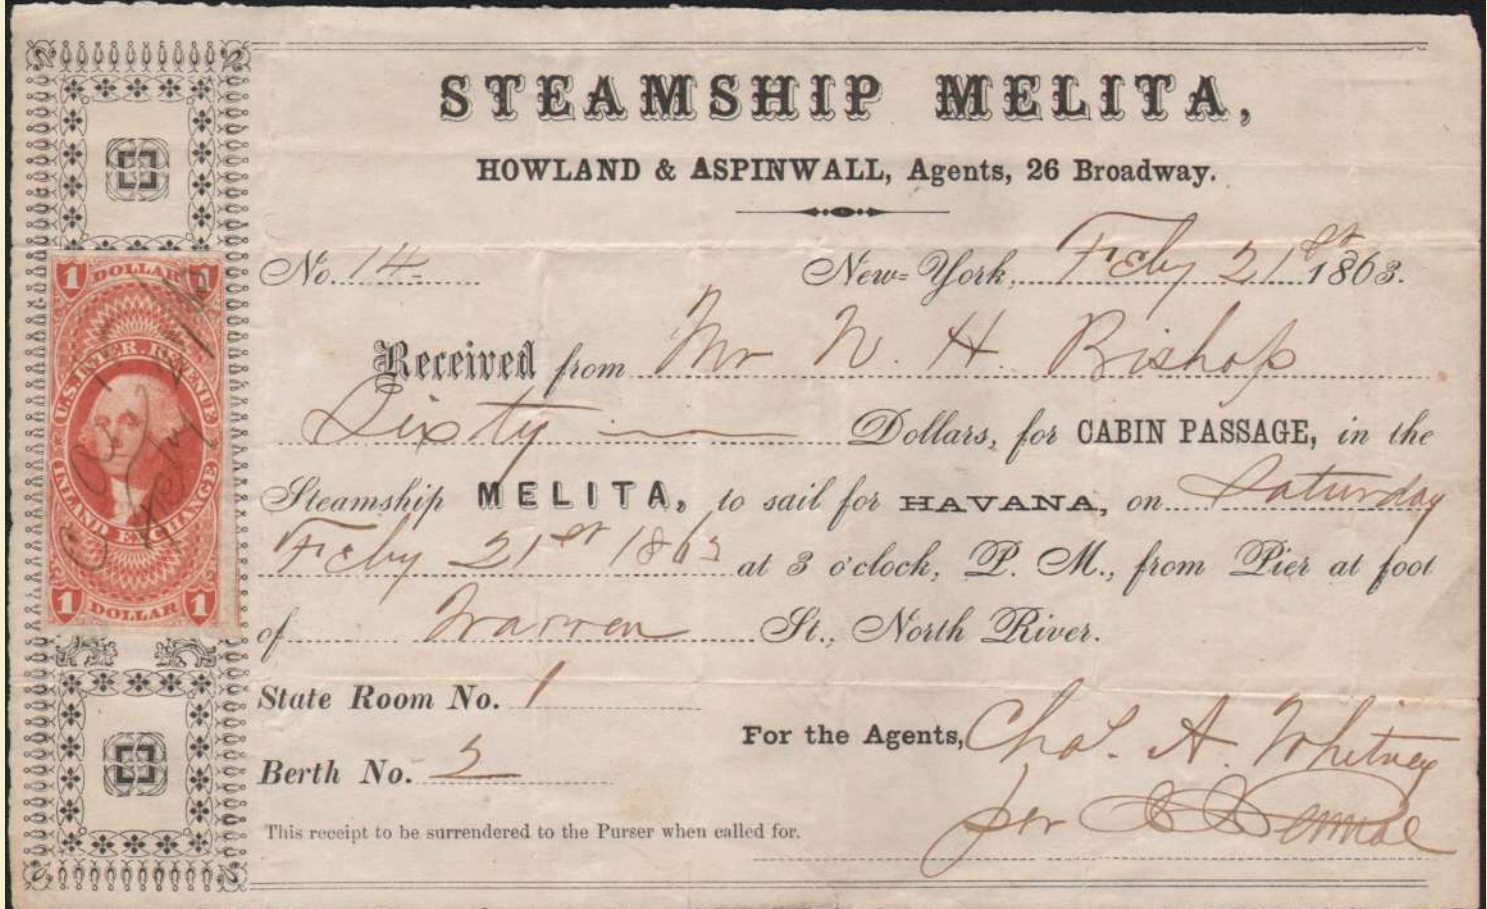 STEAMSHIP MELITA,
HOWLAND & ASPINWALL, Agents, 26 Broadway.
No. 14 New-York, Feby 21st 1863.
Received from Mr N. H. Bishop
Sixty Dollars, for CABIN PASSAGE, in the
Steamship MELITA, to sail for HAVANA, on Saturday
Feby 21st 1863 at 3 o'clock, P. M., from Pier at foot
of Warren St., North River.
State Room No. 1
For the Agents, Chas. A. Whitney
Berth No. 2
per
This receipt to be surrendered to the Purser when called for.
1 DOLLAR 1
U.S. INTER. REVENUE
INLAND EXCHANGE
1 DOLLAR 1